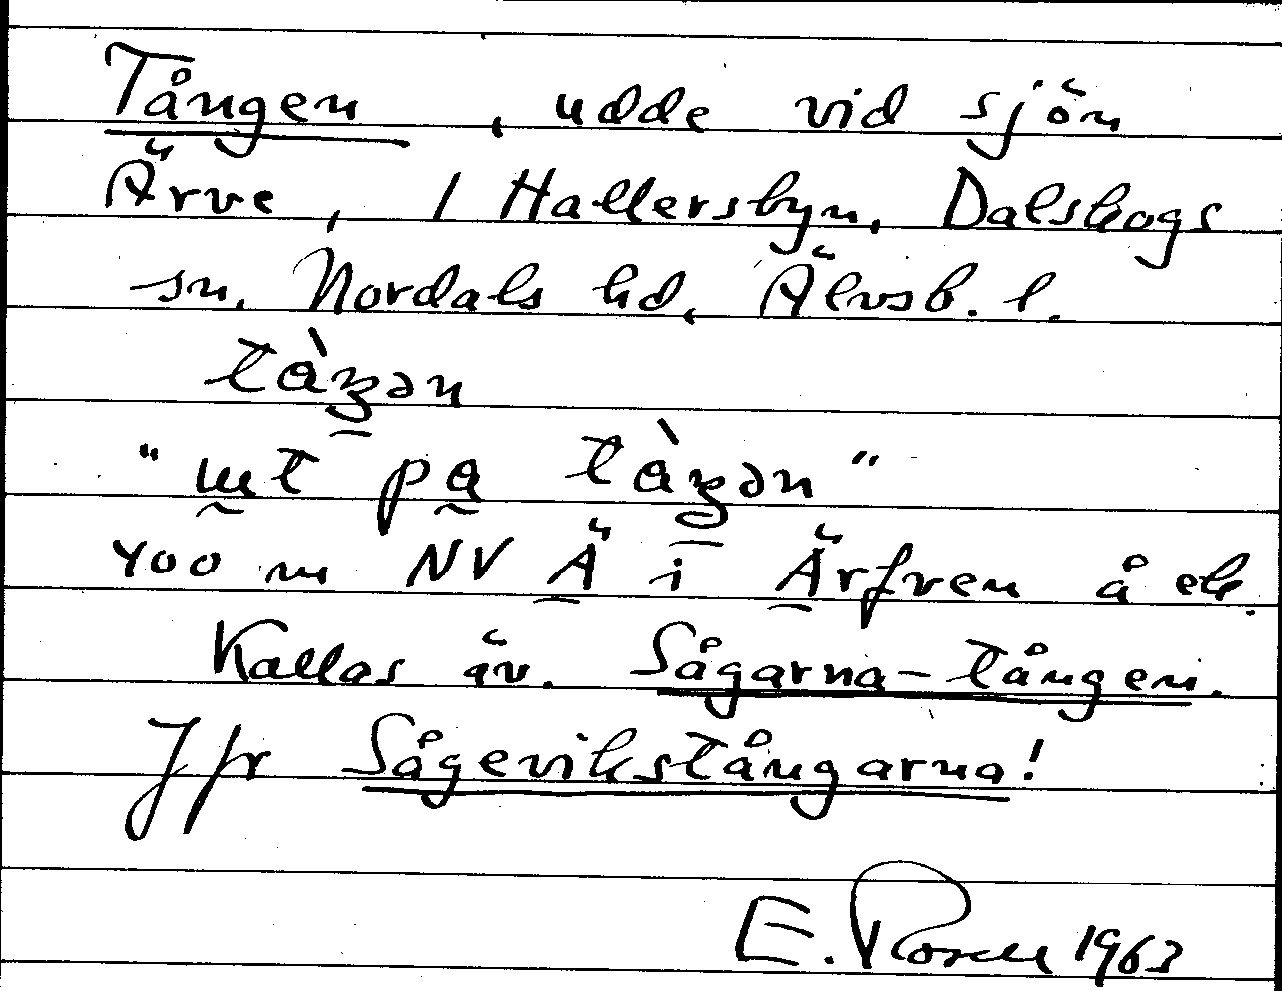 Tången, udde vid sjön
Ärve, 1 Hallersbyn, Dalskogs
sn. Nordals hd, Älvsb. l.
tàŋən
"ɯt pa tàŋən"
400 m NV Ä i Ärfven å ek.
Kallas äv. Sågarna-tången.
Jfr Sågevikstångarna!
E. Rosell 1963